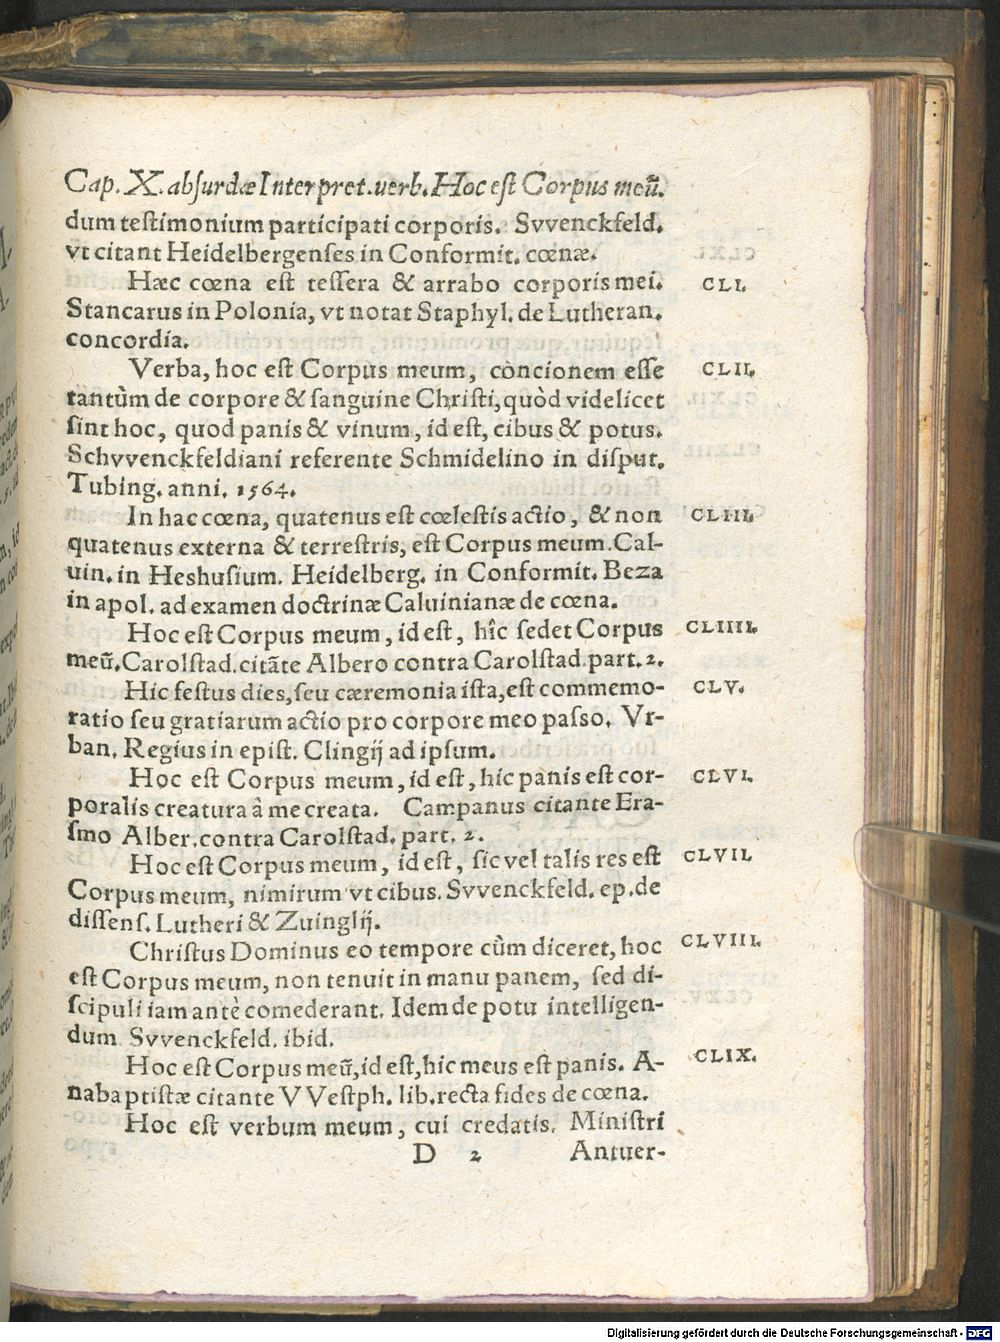 Cap. X. abſurdæ Interpret. verb. Hoc eſt Corpus meũ.
dum teſtimonium participati corporis. Svvenckfeld.
vt citant Heidelbergenſes in Conformit. cœnæ.
Hæc cœna eſt teſſera & arrabo corporis mei. CLI.
Stancarus in Polonia, vt notat Staphyl. de Lutheran.
concordia.
Verba, hoc eſt Corpus meum, concionem eſſe CLII.
tantùm de corpore & ſanguine Chriſti, quòd videlicet
ſint hoc, quod panis & vinum, id eſt, cibus & potus.
Schvvenckfeldiani referente Schmidelino in diſput.
Tubing. anni. 1564.
In hac cœna, quatenus eſt cœleſtis actio, & non CLIII.
quatenus externa & terreſtris, eſt Corpus meum. Cal-
uin. in Heshuſium. Heidelberg. in Conformit. Beza
in apol. ad examen doctrinæ Caluinianæ de cœna.
Hoc eſt Corpus meum, id eſt, hîc ſedet Corpus CLIIII.
meũ. Carolſtad. citãte Albero contra Carolſtad. part. 2.
Hic feſtus dies, ſeu cæremonia iſta, eſt commemo- CLV.
ratio ſeu gratiarum actio pro corpore meo paſſo. Vr-
ban. Regius in epiſt. Clingij ad ipſum.
Hoc eſt Corpus meum, id eſt, hic panis eſt cor- CLVI.
poralis creatura â me creata. Campanus citante Era-
ſmo Alber. contra Carolſtad. part. 2.
Hoc eſt Corpus meum, id eſt, ſic vel talis res eſt CLVII.
Corpus meum, nimirum vt cibus. Svvenckfeld. ep. de
diſſenſ. Lutheri & Zuinglij.
Chriſtus Dominus eo tempore cùm diceret, hoc CLVIII.
eſt Corpus meum, non tenuit in manu panem, ſed di-
ſcipuli iam antè comederant. Idem de potu intelligen-
dum Svvenckfeld. ibid.
Hoc eſt Corpus meũ, id eſt, hic meus eſt panis. A- CLIX.
nabaptiſtæ citante VVeſtph. lib. recta fides de cœna.
Hoc eſt verbum meum, cui credatis. Miniſtri
D 2 Antuer-
Digitalisierung gefördert durch die Deutsche Forschungsgemeinschaft - DFG